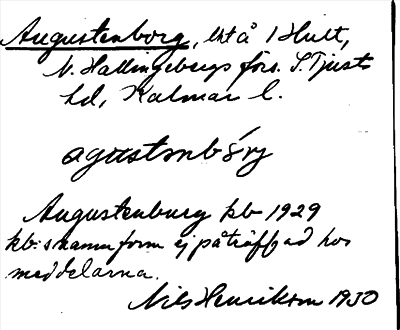 Augustenborg, lht å 1 Hult,
N. Hallingebergs förs. S. Tjusts
hd, Kalmar l.
agustnbǒrj
Augustenburg kb 1929
kb:s namnform ej påträffad hos
meddelarna.
Nils Henrikson 1930